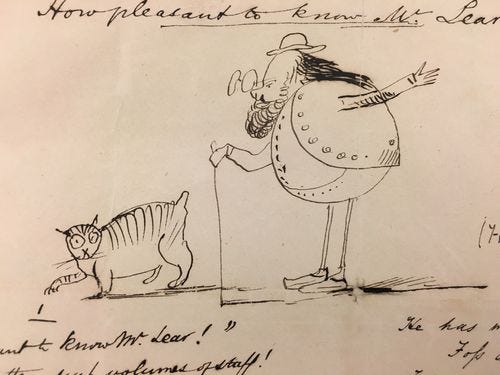 How pleasant to know Mr. Lear
1
ant to know Mr. Lear!"
volumes of stuff!
He has
Foss